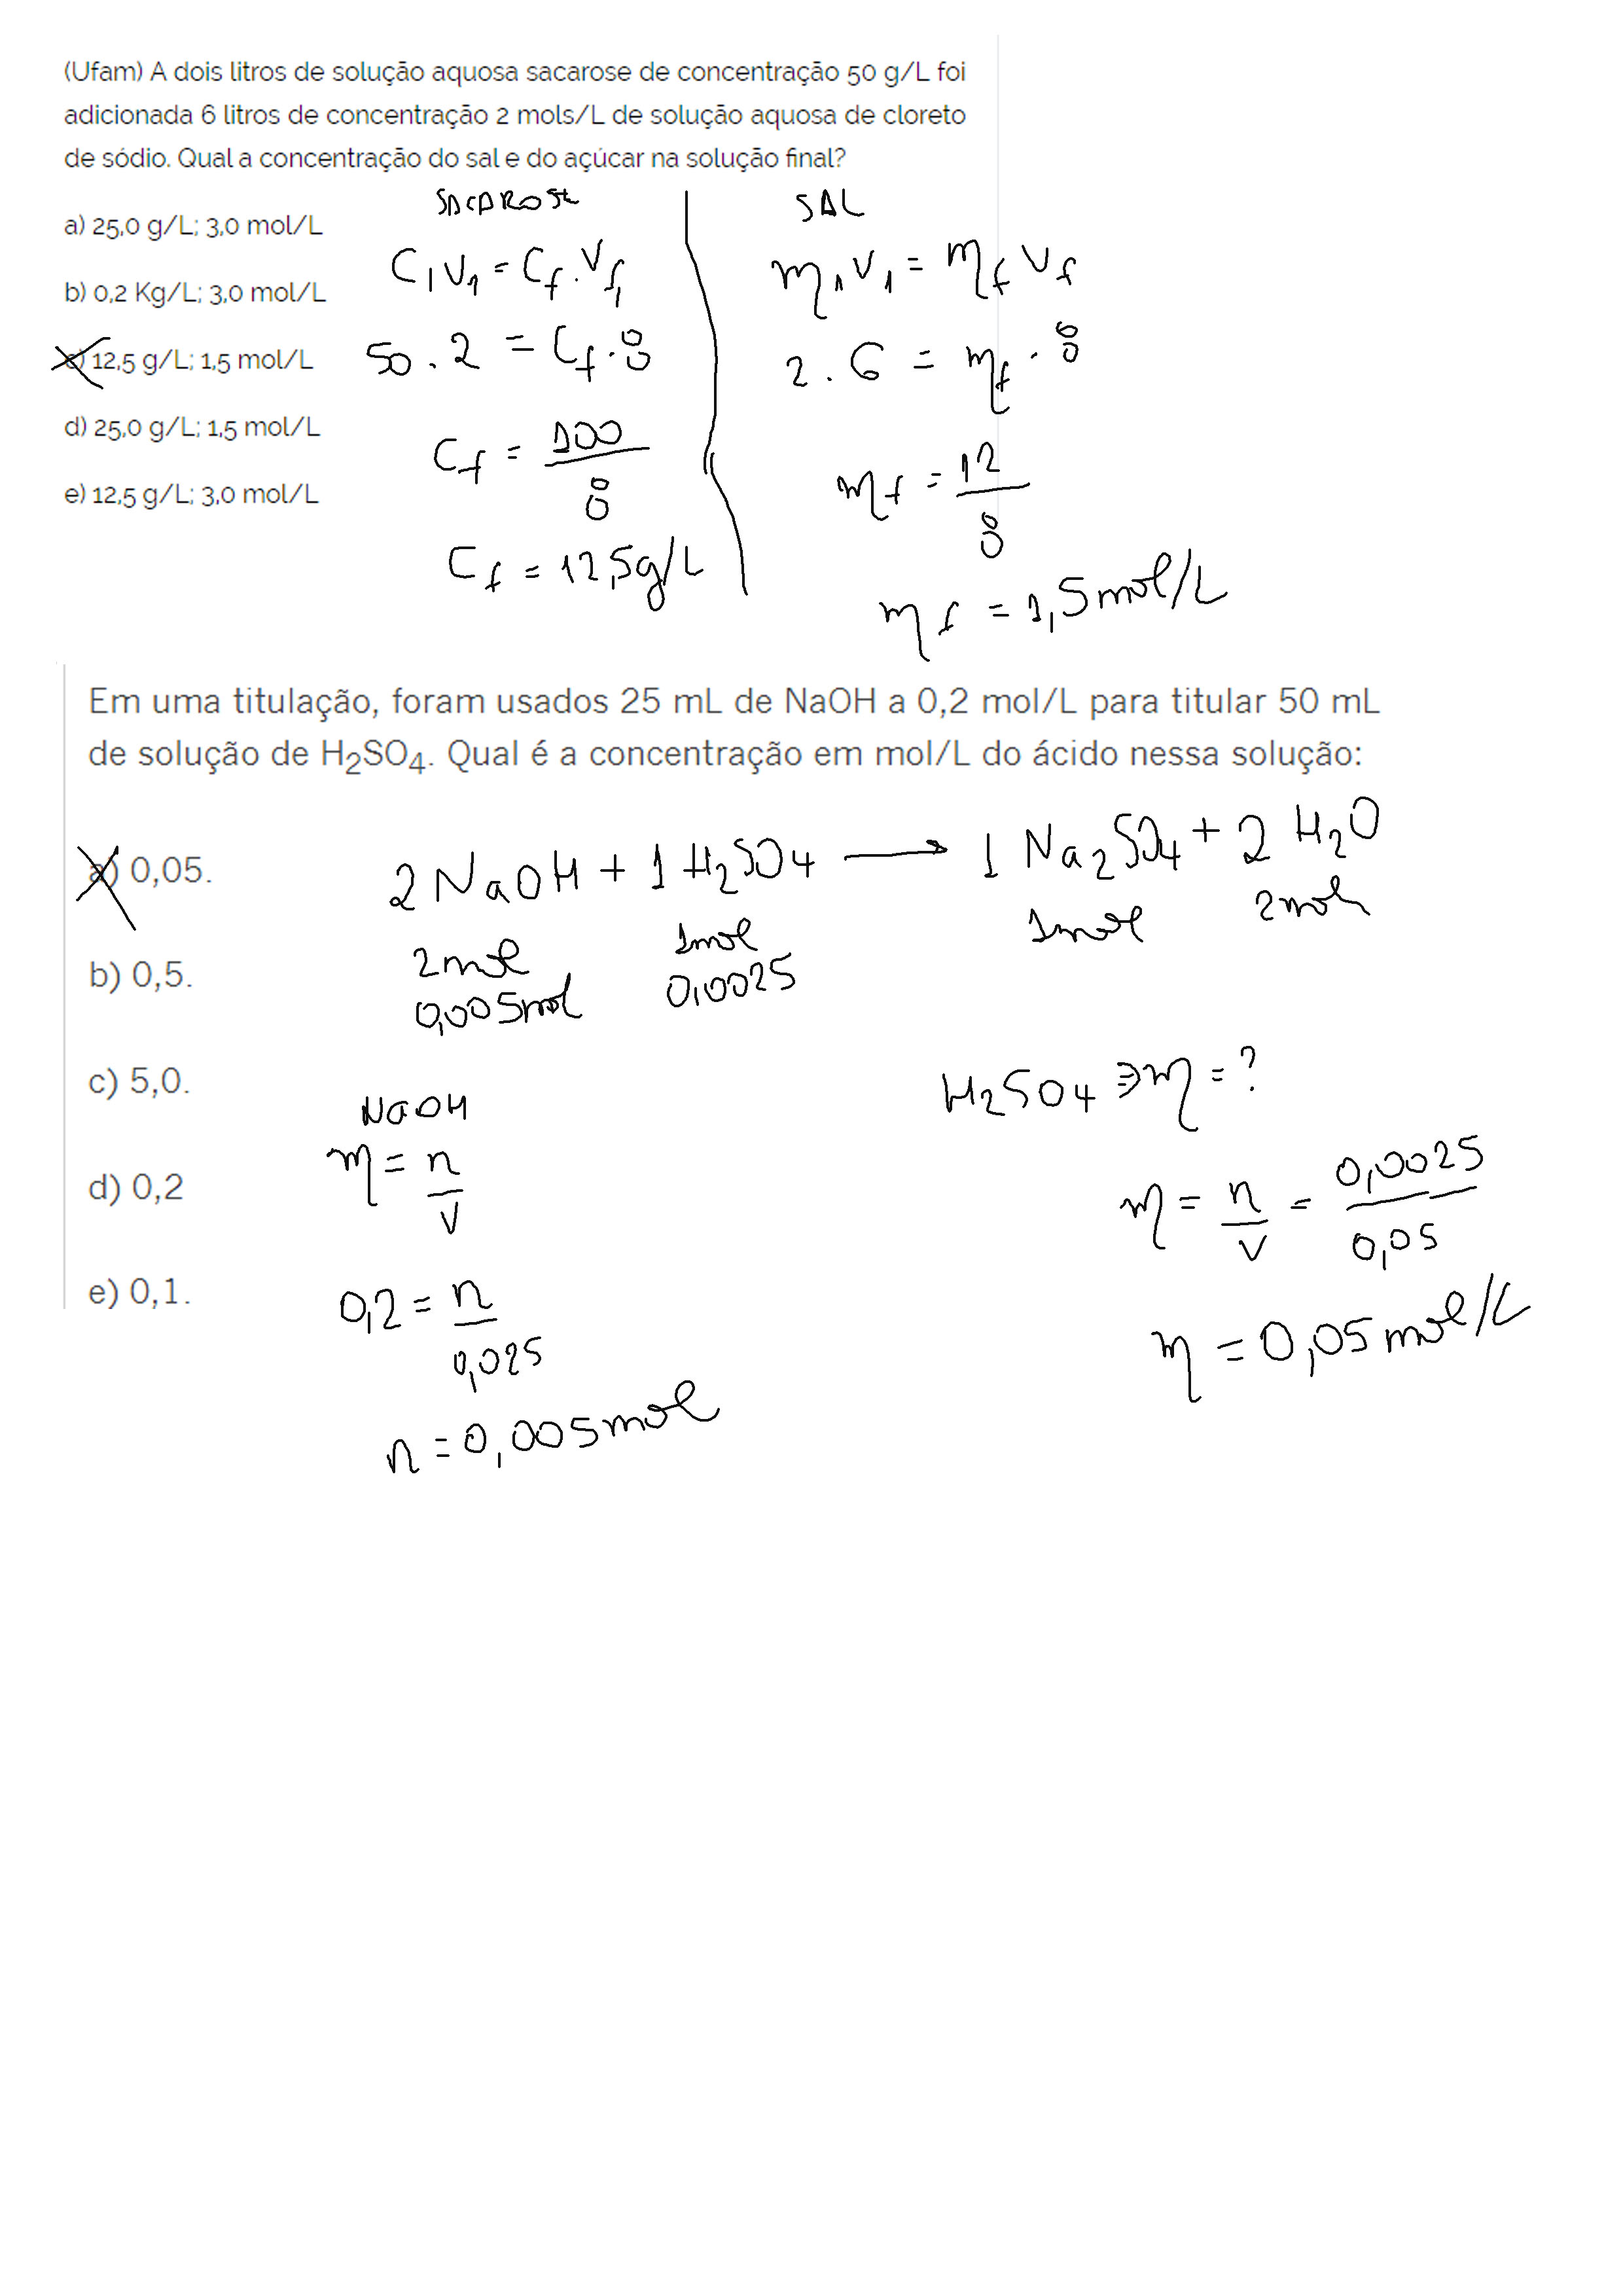 (Ufam) A dois litros de solução aquosa sacarose de concentração 50 g/L foi
adicionada 6 litros de concentração 2 mols/L de solução aquosa de cloreto
de sódio. Qual a concentração do sal e do açúcar na solução final?
a) 25,0 g/L; 3,0 mol/L
b) 0,2 Kg/L; 3,0 mol/L
c) 12,5 g/L; 1,5 mol/L
d) 25,0 g/L; 1,5 mol/L
e) 12,5 g/L; 3,0 mol/L
SACAROSE
C1V1 = Cf . Vf
50 . 2 = Cf . 8
Cf = 100/8
Cf = 12,5g/L
SAL
m1V1 = mf Vf
2 . 6 = mf . 8
mf = 12/8
mf = 1,5mol/L
Em uma titulação, foram usados 25 mL de NaOH a 0,2 mol/L para titular 50 mL
de solução de H2SO4. Qual é a concentração em mol/L do ácido nessa solução:
a) 0,05.
b) 0,5.
c) 5,0.
d) 0,2
e) 0,1.
2 NaOH + 1 H2SO4 → 1 Na2SO4 + 2 H2O
2mol 1mol 1mol 2mol
0,005mol 0,0025
NaOH
m = n/V
0,2 = n/0,025
n = 0,005mol
H2SO4 ⇒ m = ?
m = n/V = 0,0025/0,05
m = 0,05mol/L